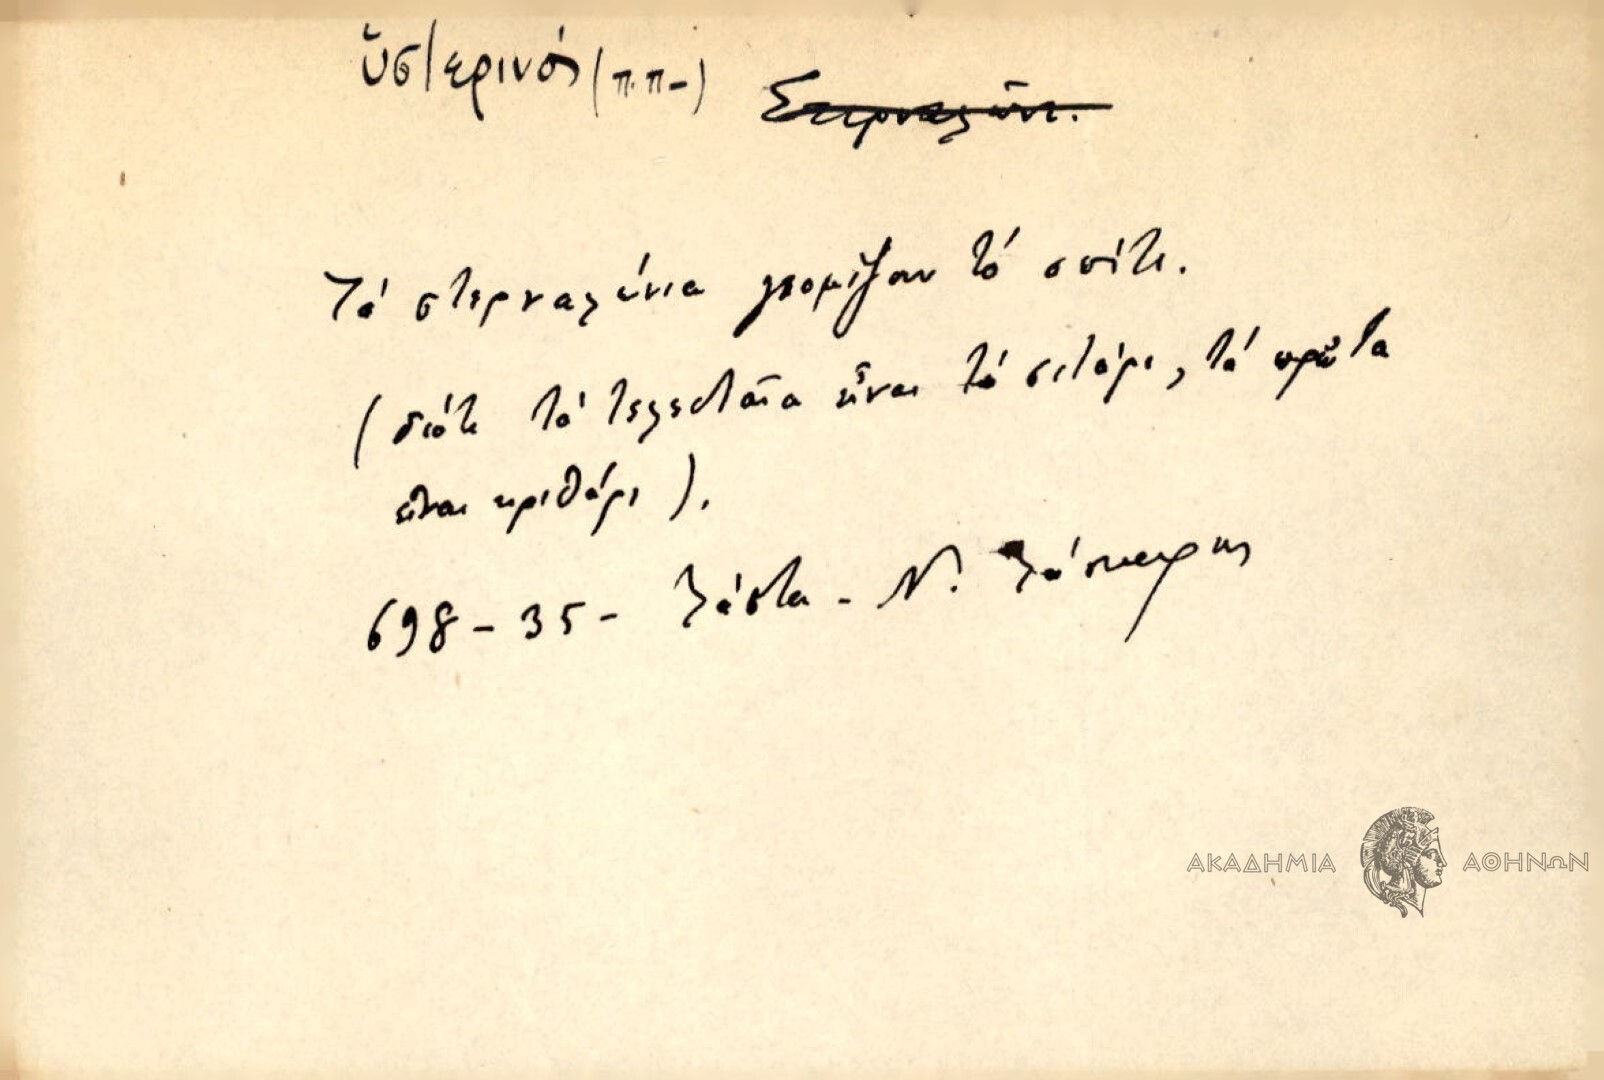 ὑστερινός (π.π-) Στερναλῶνι.
Τά στερναλώνια γεομίζουν τό σπίτι.
( διότι τά τελευταῖα εἶναι τό σιτάρι, τά πρῶτα
εἶναι κριθάρι ).
698 - 35 - Λάστα - Ν. Λάσκαρης
ΑΚΑΔΗΜΙΑ ΑΘΗΝΩΝ